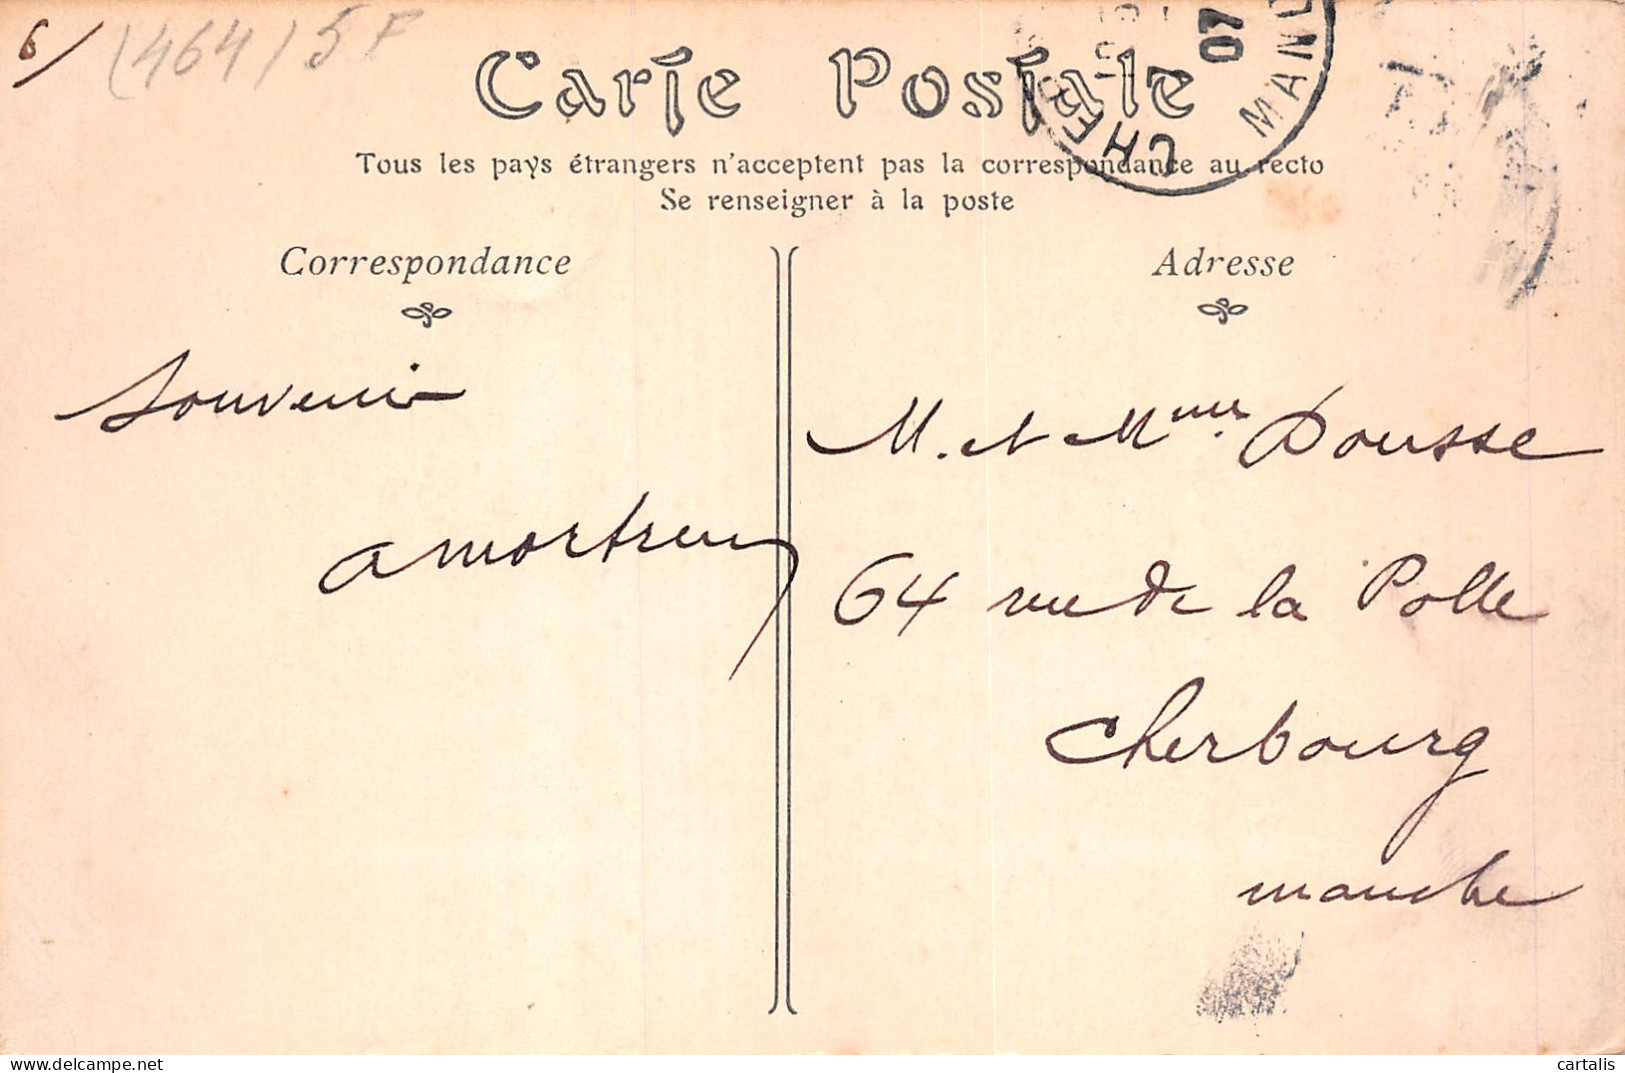 6/
(464) 5F
Carte Postale
CHERBOURG MANCHE
07
Tous les pays étrangers n'acceptent pas la correspondance au recto
Se renseigner à la poste
Correspondance
Adresse
Souvenir
M. et Mme. Dousse
amortreux
64 rue de la Polle
Cherbourg
manche
cartalis